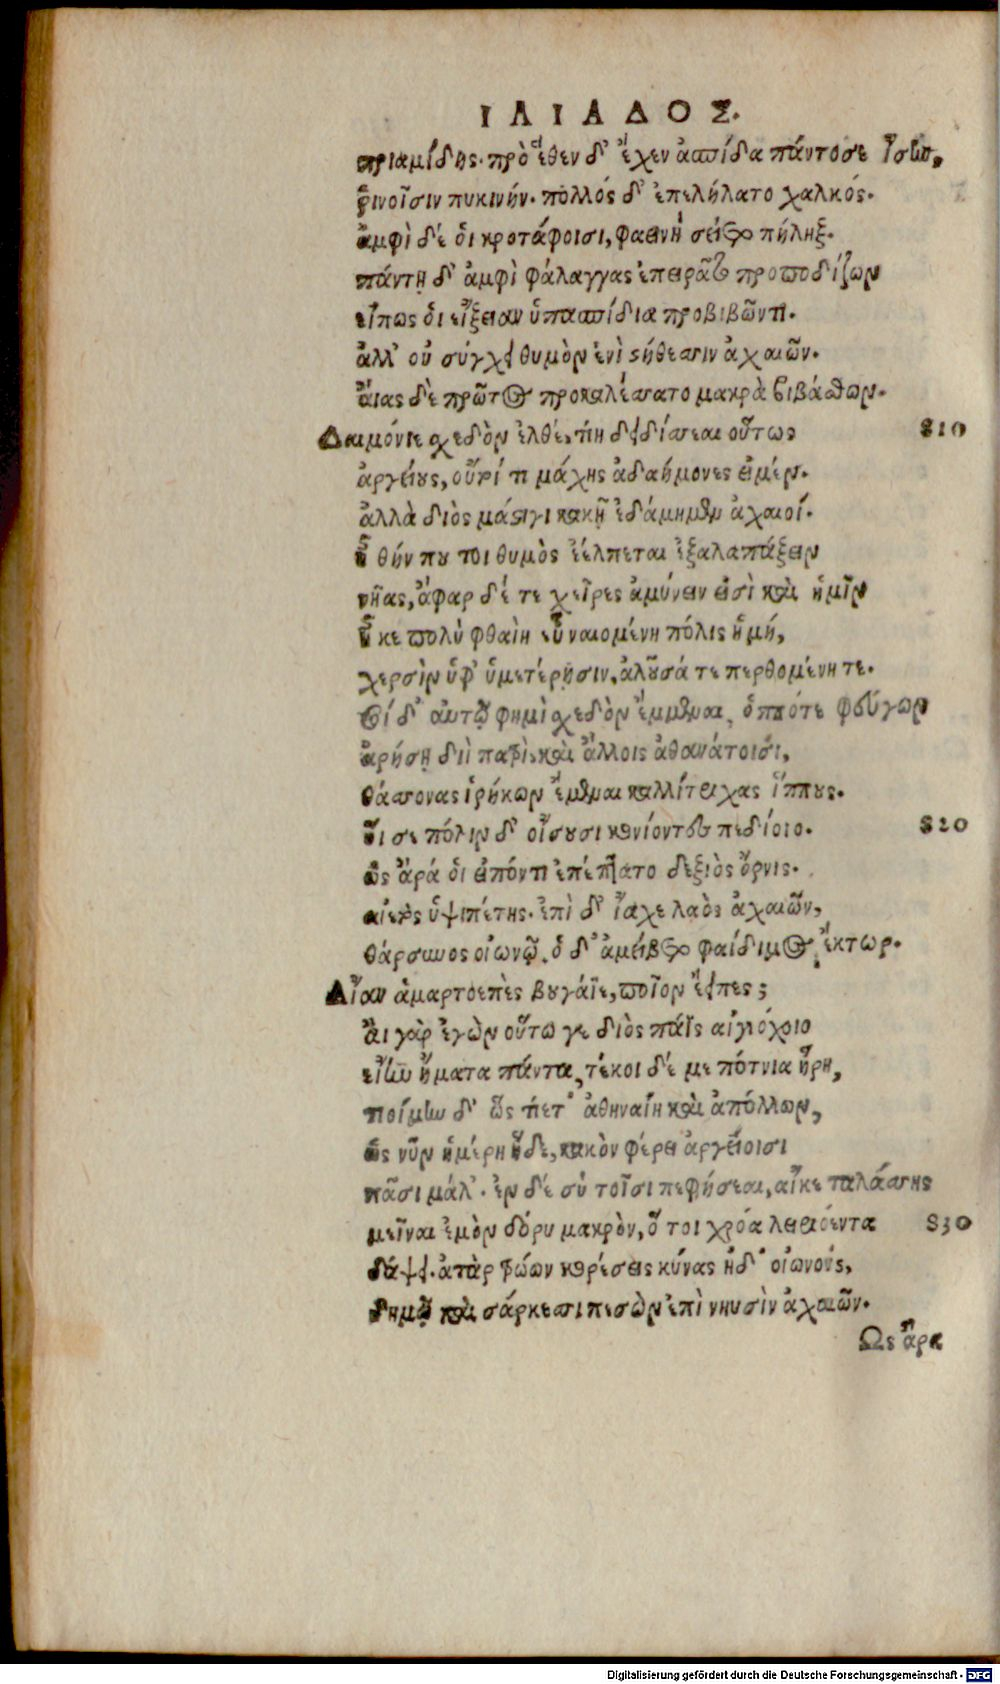 ΙΛΙΑΔΟΣ.
πριαμίδης· πρὸ ἕθεν δ' ἔχεν ἀσπίδα πάντοσε ἴσην,
ῥινοῖσιν πυκινήν· πολλός δ' ἐπελήλατο χαλκός·
ἀμφὶ δέ οἱ κροτάφοισι, φαεινὴ σείετο πήληξ·
πάντῃ δ' ἀμφὶ φάλαγγας ἐπειρᾶτο προποδίζων
εἴπως οἱ εἴξειαν ὑπασπίδια προβιβῶντι·
ἀλλ' οὐ σύγχει θυμὸν ἐνὶ στήθεσσιν ἀχαιῶν·
αἴας δὲ πρῶτος προκαλέσσατο μακρὰ βιβάσθων·
Δαιμόνιε σχεδὸν ἐλθέ, τίη δειδίσσεαι οὕτως 810
ἀργείους, οὔτοί τι μάχης ἀδαήμονες εἰμέν·
ἀλλὰ διὸς μάστιγι κακῇ ἐδάμημεν ἀχαιοί·
ἦ θήν που τοι θυμὸς ἐέλπεται ἐξαλαπάξειν
νῆας, ἄφαρ δέ τε χεῖρες ἀμύνειν εἰσὶ καὶ ἡμῖν
ἦ κε πολὺ φθαίη εὖ ναιομένη πόλις ἡμή,
χερσὶν ὑφ' ὑμετέρῃσιν, ἁλοῦσά τε περθομένη τε·
σοί δ' αὐτῷ φημὶ σχεδὸν ἔμμεναι, ὁππότε φεύγων
ἀρήσῃ διῒ πατρὶ, καὶ ἄλλοις ἀθανάτοισι,
θάσσονας ἰρήκων ἔμεναι καλλίτειχας ἵππους·
οἵ σε πόλιν δ' οἴσουσι κονίοντες πεδίοιο· 820
ὣς ἄρά οἱ εἰπόντι ἐπέπτατο δεξιὸς ὄρνις·
αἰετὸς ὑψιπέτης· ἐπὶ δ' ἴαχε λαὸς ἀχαιῶν,
θάρσυνος οἰωνῷ, ὁ δ' ἀμείβετο φαίδιμος ἕκτωρ·
Αἶαν ἁμαρτοεπὲς βουγάϊε, ποῖον ἔειπες;
αἲ γὰρ ἐγὼν οὕτω γε διὸς πάϊς αἰγιόχοιο
εἴην ἤματα πάντα, τέκοι δέ με πότνια ἥρη,
τιοίμην δ' ὡς τίετ' ἀθηναίη καὶ ἀπόλλων,
ὡς νῦν ἡμέρη ἥδε, κακὸν φέρει ἀργείοισι
πᾶσι μάλ'· ἐν δέ σὺ τοῖσι πεφήσεαι, αἴκε ταλάσσῃς
μεῖναι ἐμὸν δόρυ μακρὸν, ὅ τοι χρόα λειριόεντα 830
δάψει· ἀτὰρ τρώων κορέσεις κύνας ἠδ' οἰωνούς,
δημῷ καὶ σάρκεσσι πεσὼν ἐπὶ νηυσὶν ἀχαιῶν·
Ὣς ἄρα
Digitalisierung gefördert durch die Deutsche Forschungsgemeinschaft - DFG